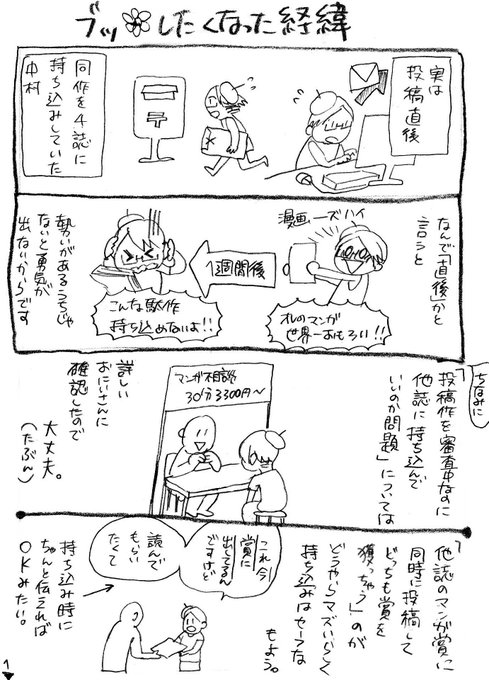 ブッ したくなった経緯
実は
投稿直後
同作を4誌に
持ち込みしていた
中村
なんで「直後」かと
言うと
漫画ーズハイ
オレのマンガ
世界一おもろい!!
1週間後
こんな駄作
持ち込めないよ!!
勢いがあるうちじゃ
ないと勇気が
出ないからです
ちなみに
「投稿作を審査中なのに
他誌に持ち込んで
いいのか問題」については
マンガ相談
30分3300円〜
詳しい
おにいさんに
確認したので
大丈夫。
(たぶん)
「他誌のマンガ賞に
同時に投稿して
どっちも賞を
獲っちゃう」のが
どうやらマズいらしく
持ち込みはセーフな
もよう。
これ今
賞に
出してるん
ですけど
読んで
もらい
たくて
持ち込み時に
ちゃんと伝えれば
OKみたい。
1